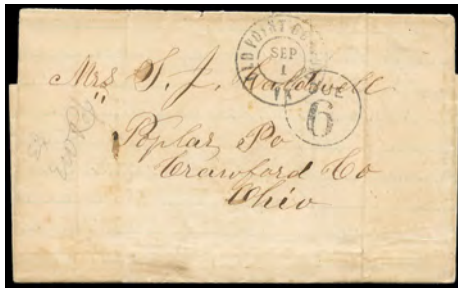 OLD POINT CO
SEP
1
VA
DUE
6
Mrs S. J.
"
Poplar Po
Crawford Co
Ohio